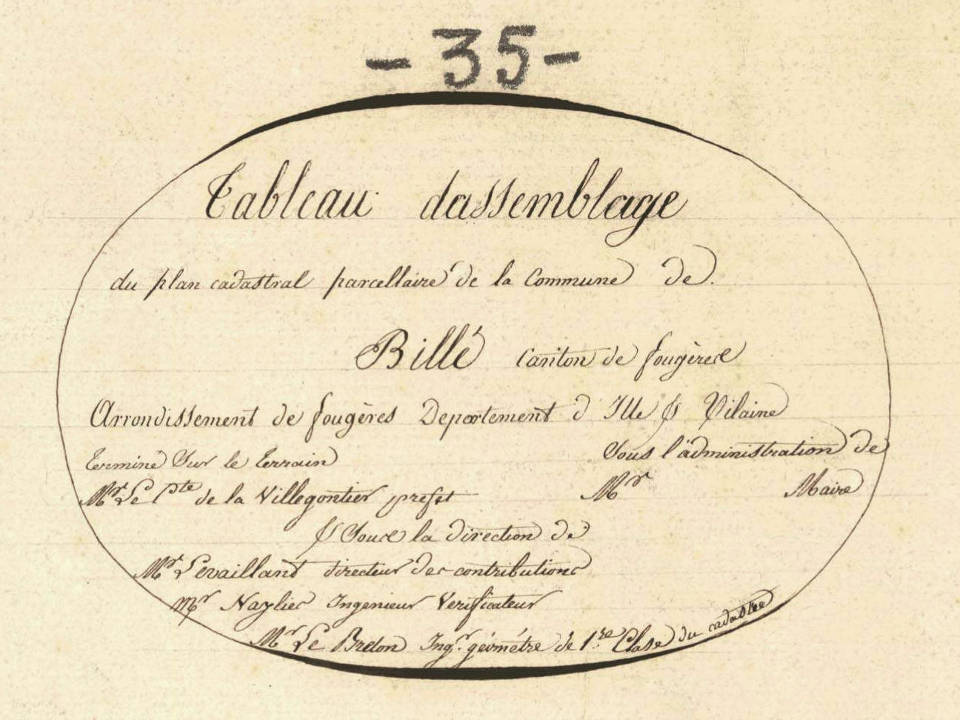 - 35 -
Tableau dassemblage
du plan cadastral parcellaire de la Commune de.
Billé Canton de fougères
Arrondissement de fougères Departement d Ille & Vilaine
termine Sur le terrain Sous l'administration de
Mr. Le Cte de la Villegontier prefet Mr Maire
& Sous la direction de
Mr. Levaillant directeur des contributions
Mr Naylies Ingenieur Verificateur
Mr Le Breton Ingr. géométre de 1.re Classe du cadastre